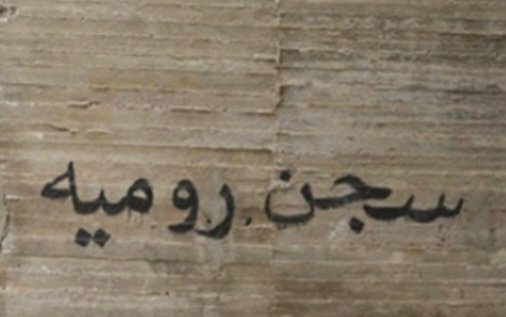 سجن روميه